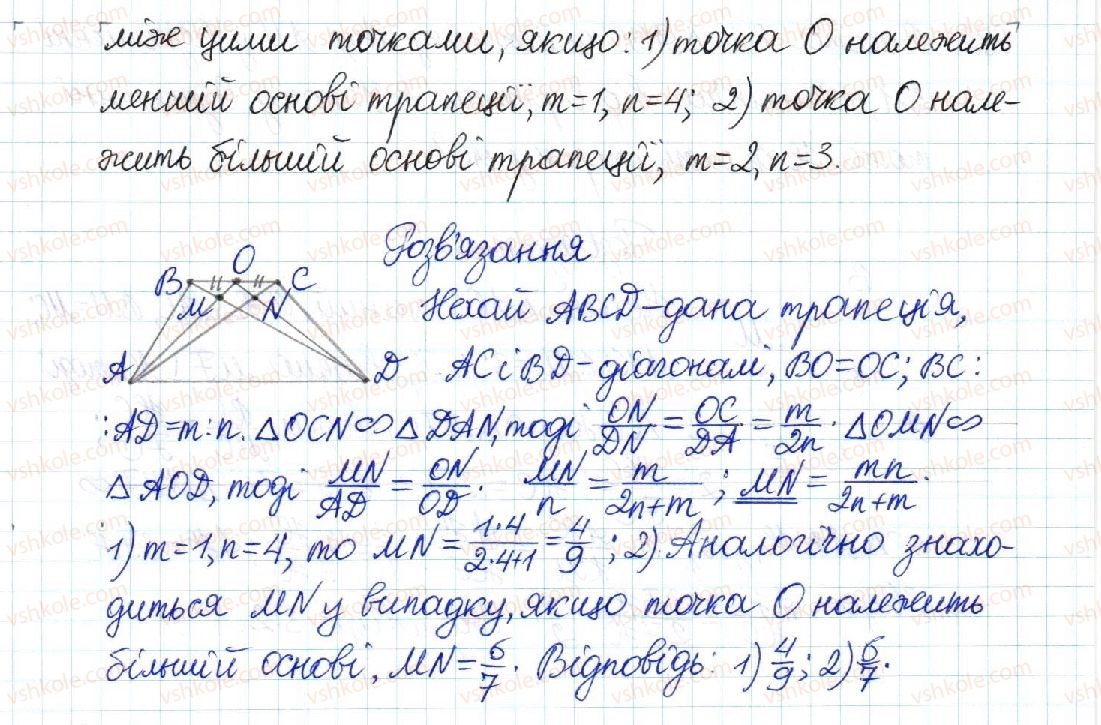 між цими точками, якщо: 1) точка О належить
меншій основі трапеції, m=1, n=4; 2) точка О нале-
жить більшій основі трапеції, m=2, n=3.
Розв'язання
B O C
M N
A D
Нехай ABCD - дана трапеція,
AC і BD - діагоналі, BO=OC; BC:
:AD=m:n. △OCN∽△DAN, тоді ON/DN = OC/DA = m/2n. △OMN∽
△AOD, тоді MN/AD = ON/OD. MN/n = m/2n+m; MN = mn/2n+m.
1) m=1, n=4, то MN = 1·4/2·4+1 = 4/9; 2) Аналогічно знахо-
диться MN у випадку, якщо точка О належить
більшій основі, MN = 6/7. Відповідь: 1) 4/9; 2) 6/7.
vshkole.com